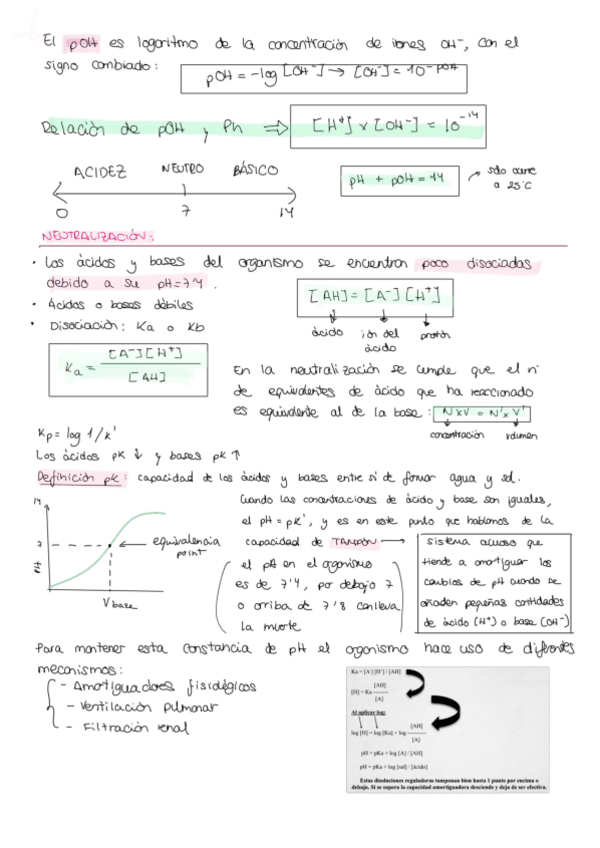 El pOH es logaritmo de la concentración de iones OH⁻, con el
signo cambiado: pOH = -log [OH⁻] → [OH⁻] = 10⁻ᵖᴼᴴ
Relación de pOH y Ph ⇒ [H⁺] x [OH⁻] = 10⁻¹⁴
ACIDEZ NEUTRO BÁSICO
0 7 14
pH + pOH = 14 → sólo ocurre
a 25°C
NEUTRALIZACIÓN:
· Los ácidos y bases del organismo se encuentran poco disociados
debido a su pH=7'4.
· Ácidos o bases débiles
· Disociación: Ka o Kb
[AH] = [A⁻][H⁺]
ácido ión del ácido protón
Ka = [A⁻][H⁺] / [AH]
En la neutralización se cumple que el nº
de equivalentes de ácido que ha reaccionado
es equivalente al de la base: N x V = N' x V'
concentración volumen
Kp = log 1/k'
Los ácidos pK ↓ y bases pK ↑
Definición pK: capacidad de los ácidos y bases entre sí de formar agua y sal.
14
7
pH
equivalencia
point
V base
Cuando las concentraciones de ácido y base son iguales,
el pH = pK', y es en este punto que hablamos de la
capacidad de TAMPÓN →
sistema acuoso que
tiende a amortiguar los
cambios de pH cuando se
añaden pequeñas cantidades
de ácido (H⁺) o base (OH⁻)
el pH en el organismo
es de 7'4, por debajo 7
o arriba de 7'8 conlleva
la muerte
Para mantener esta constancia de pH el organismo hace uso de diferentes
mecanismos:
- Amortiguadores fisiológicos
- Ventilación pulmonar
- Filtración renal
Ka = [A⁻] [H⁺] / [AH]
[H] = Ka [AH] / [A]
Al aplicar log:
log [H] = log [Ka] + log [AH] / [A]
pH = pKa + log [A] / [AH]
pH = pKa + log [sal] / [ácido]
Estas disoluciones reguladoras tamponan bien hasta 1 punto por encima o
debajo. Si se supera la capacidad amortiguadora desciende y deja de ser efectiva.